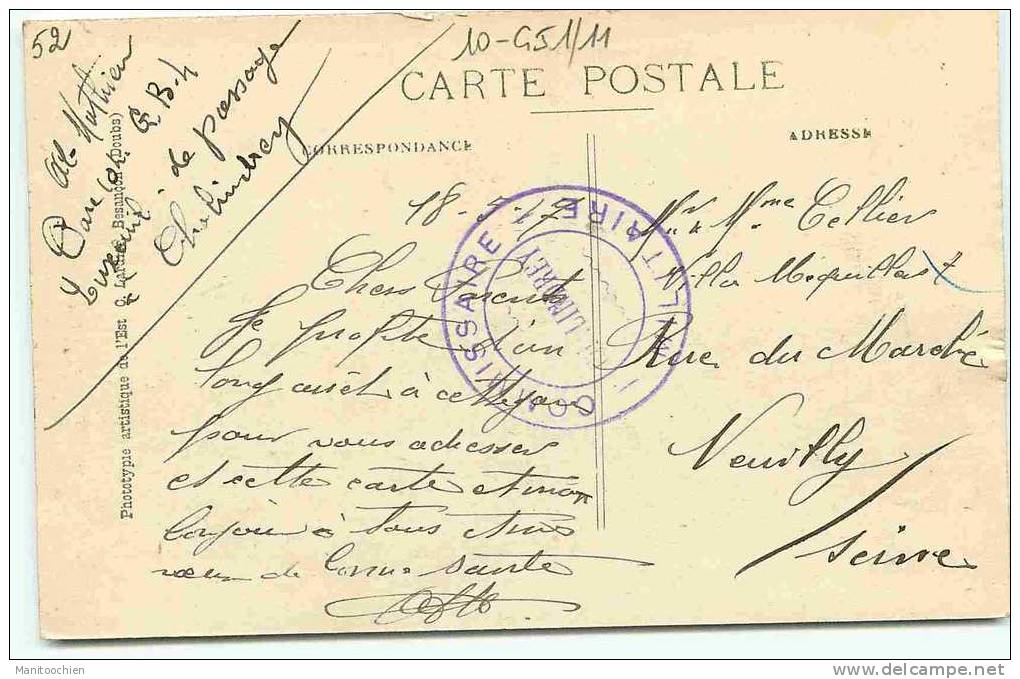 52
10-G51/11
CARTE POSTALE
CORRESPONDANCE
ADRESSE
Al. Mathieu
de passage
Chalindrey
Phototypie artistique de l'Est C. Lardier, Besançon (Doubs)
COMMISSAIRE MILITAIRE
18
Chers Parents
Je profite d'un
long arrêt à cette gare
pour vous adresser
et cette carte et mon
bonjour à tous et mes
vœux de bonne santé
Mr & Mme Tellier
Villa
Rue du Marché
Neuilly
Seine
Manitoochien
delcampe.net